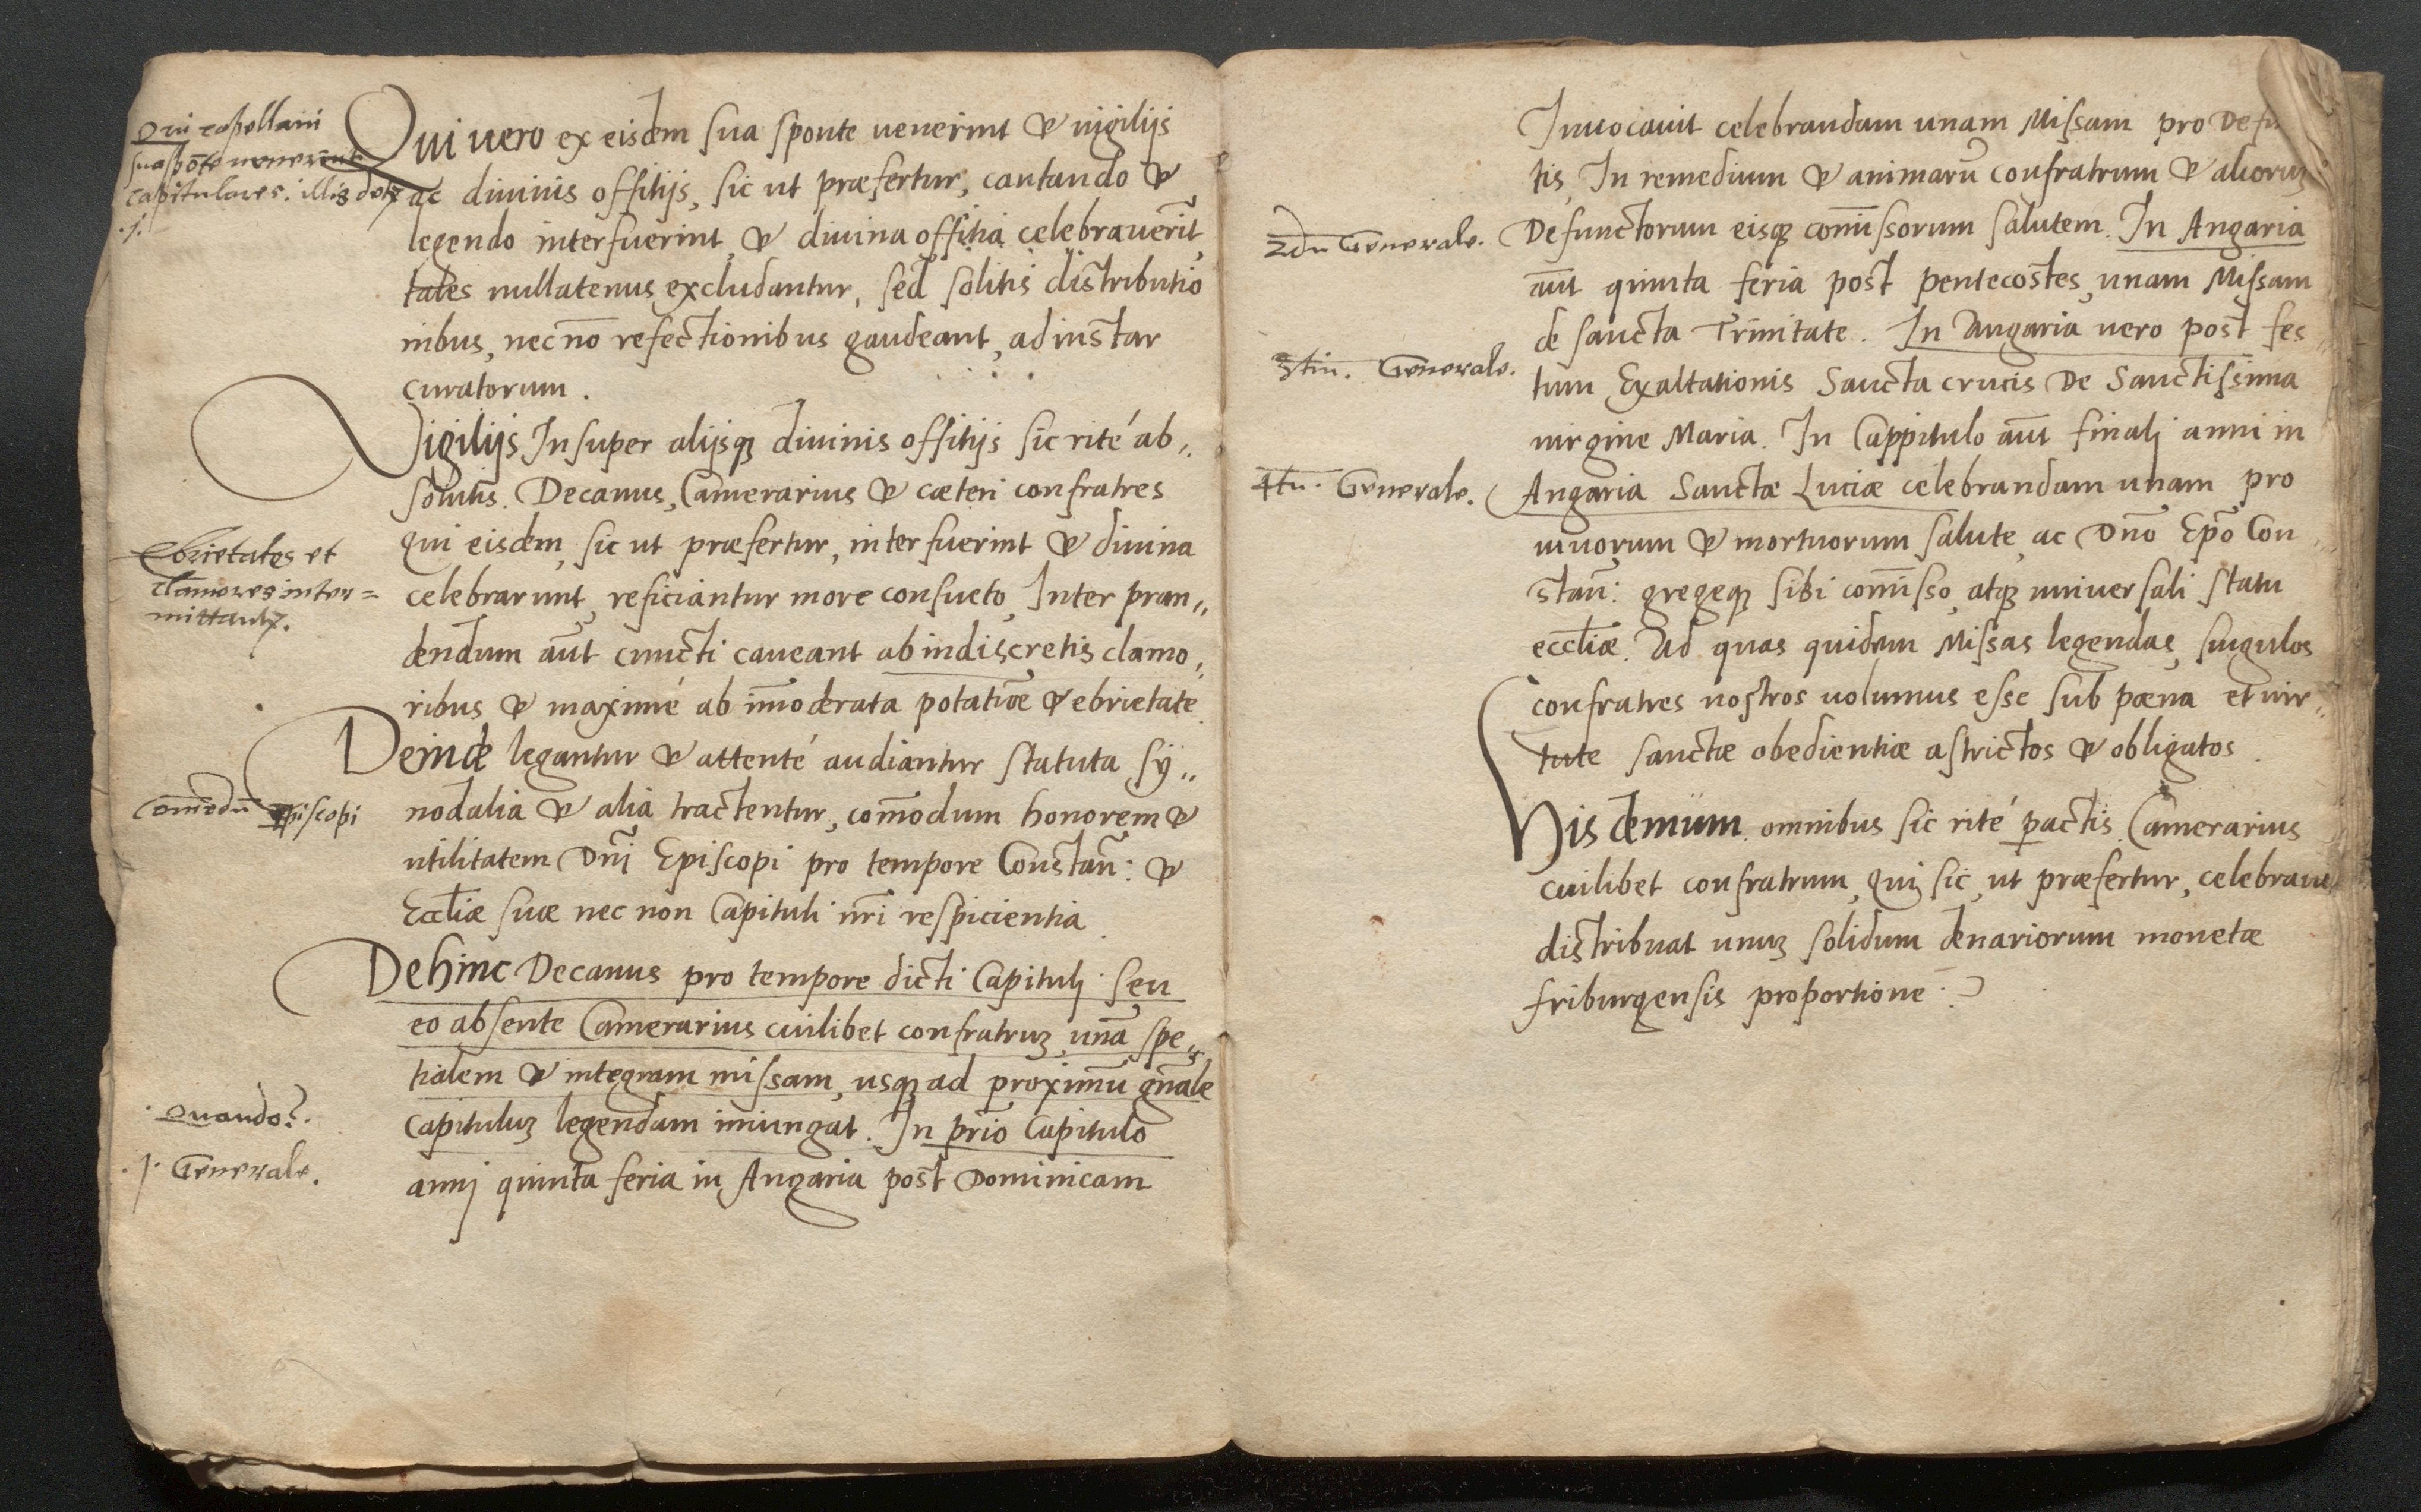 Qui capellani
sua spōte uenerint
capitulares. illis detꝛ
.1.
Qui uero ex eisdem sua sponte uenerint & uigilijs
ac diuinis offitijs, sic ut præfertur, cantando &
legendo interfuerint, & diuina offitia celebrauerīt,
tales nullatenus excludantur, sed solitis distributio
nibus, nec nō refectionibus gaudeant, ad instar
curatorum.
Vigilijs Insuper alijsqꝫ diuinis offitijs sic rité ab„
solutis. Decanus, Camerarius & cæteri confratres
qui eisdem, sic ut præfertur, interfuerint & diuina
Ebrietates et
clamores inter=
mittantꝛ.
celebrarunt, reficiantur more consueto, Inter pran„
dendum aūt cuncti caueant ab indiscretis clamo„
ribus & maximé ab īmoderata potatiōe & ebrietate.
Deinde legantur & attenté audiantur statuta sy„
Com̄odū Episcopi
nodalia & alia tractentur, com̄odum honorem &
utilitatem Dn̄i Episcopi pro tempore Constan̄: &
Eccl̄iæ suæ nec non Capituli nr̄i respicientia.
Dehinc Decanus pro tempore dicti Capitulj seu
eo absente Camerarius cuilibet confratruꝫ, unā spe„
tialem & integram missam, usqꝫ ad proximū gn̄ale
Quando?.
Capituluꝫ legendam iniungat. In prīo Capitulo
.1. Generale.
annj quinta feria in Angaria post Dominicam
Inuocauit celebrandam unam Missam pro Defu
tis, In remedium & animarū confratrum & alioruꝫ
2dū Generale.
Defunctorum eisqꝫ com̄issorum salutem. In Angaria
aūt quinta feria post pentecostes, unam Missam
de sancta Trinitate. In Angaria uero post fes„
3tiū. Generale.
tum Exaltationis Sancta crucis De Sanctissima
uirgine Maria. In Cappitulo aūt finalj anni in
4tū. Generale.
Angaria Sanctæ Luciæ celebrandam unam pro
uiuorum & mortuorum salute, ac Dn̄o Ep̄o Con„
stan̄: gregeqꝫ sibi com̄isso, atqꝫ uniuersali statu
eccl̄iæ. Ad quas quidem Missas legendas, singulos
confratres nostros uolumus esse sub pæna et uir„
tute sanctæ obedientiæ astrictos & obligatos.
His demum omnibus sic rité ꝑactis, Camerarius
cuilibet confratrum, quj sic, ut præfertur, celebrau
distribuat unuꝫ solidum denariorum monetæ
friburgensis proportione.